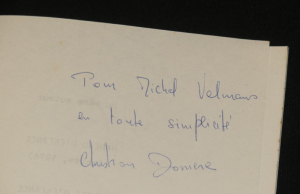 Pour Michel Velmans
en toute simplicité
Christian